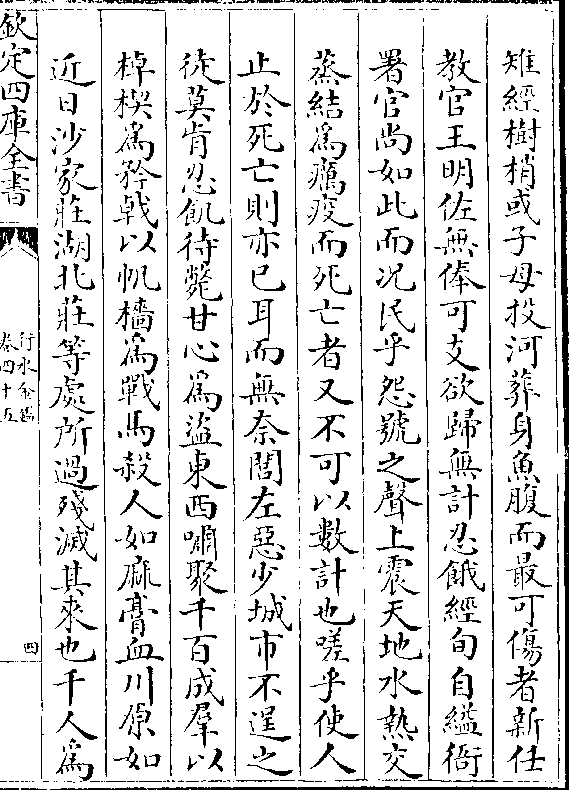 雉經樹梢或子母投河葬身魚腹而最可傷者新任
教官王明佐無俸可支欲歸無計忍餓經旬自縊衙
署官尚如此而况民乎怨號之聲上震天地水熱交
蒸結為癘疫而死亡者又不可以數計也嗟乎使人
止於死亡則亦已耳而無奈閭左惡少城市不逞之
徒莫肯忍飢待斃甘心為盜東西嘯聚千百成羣以
棹楔為矜戟以帆檣為戰馬殺人如麻膏血川原如
近日沙家莊湖北莊等處所過殘滅其來也千人為
欽定四庫全書
行水金鑑
卷四十五
四